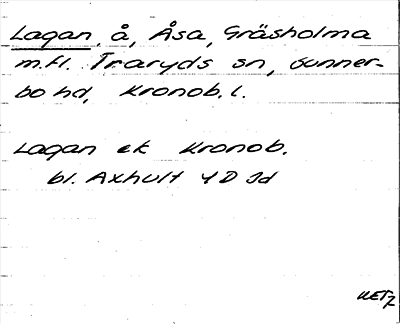 Lagan, å, Åsa, Gräsholma
m.fl. Traryds sn, Sunner-
bo hd, Kronob. l.
Lagan ek Kronob.
bl. Axhult 4D Id